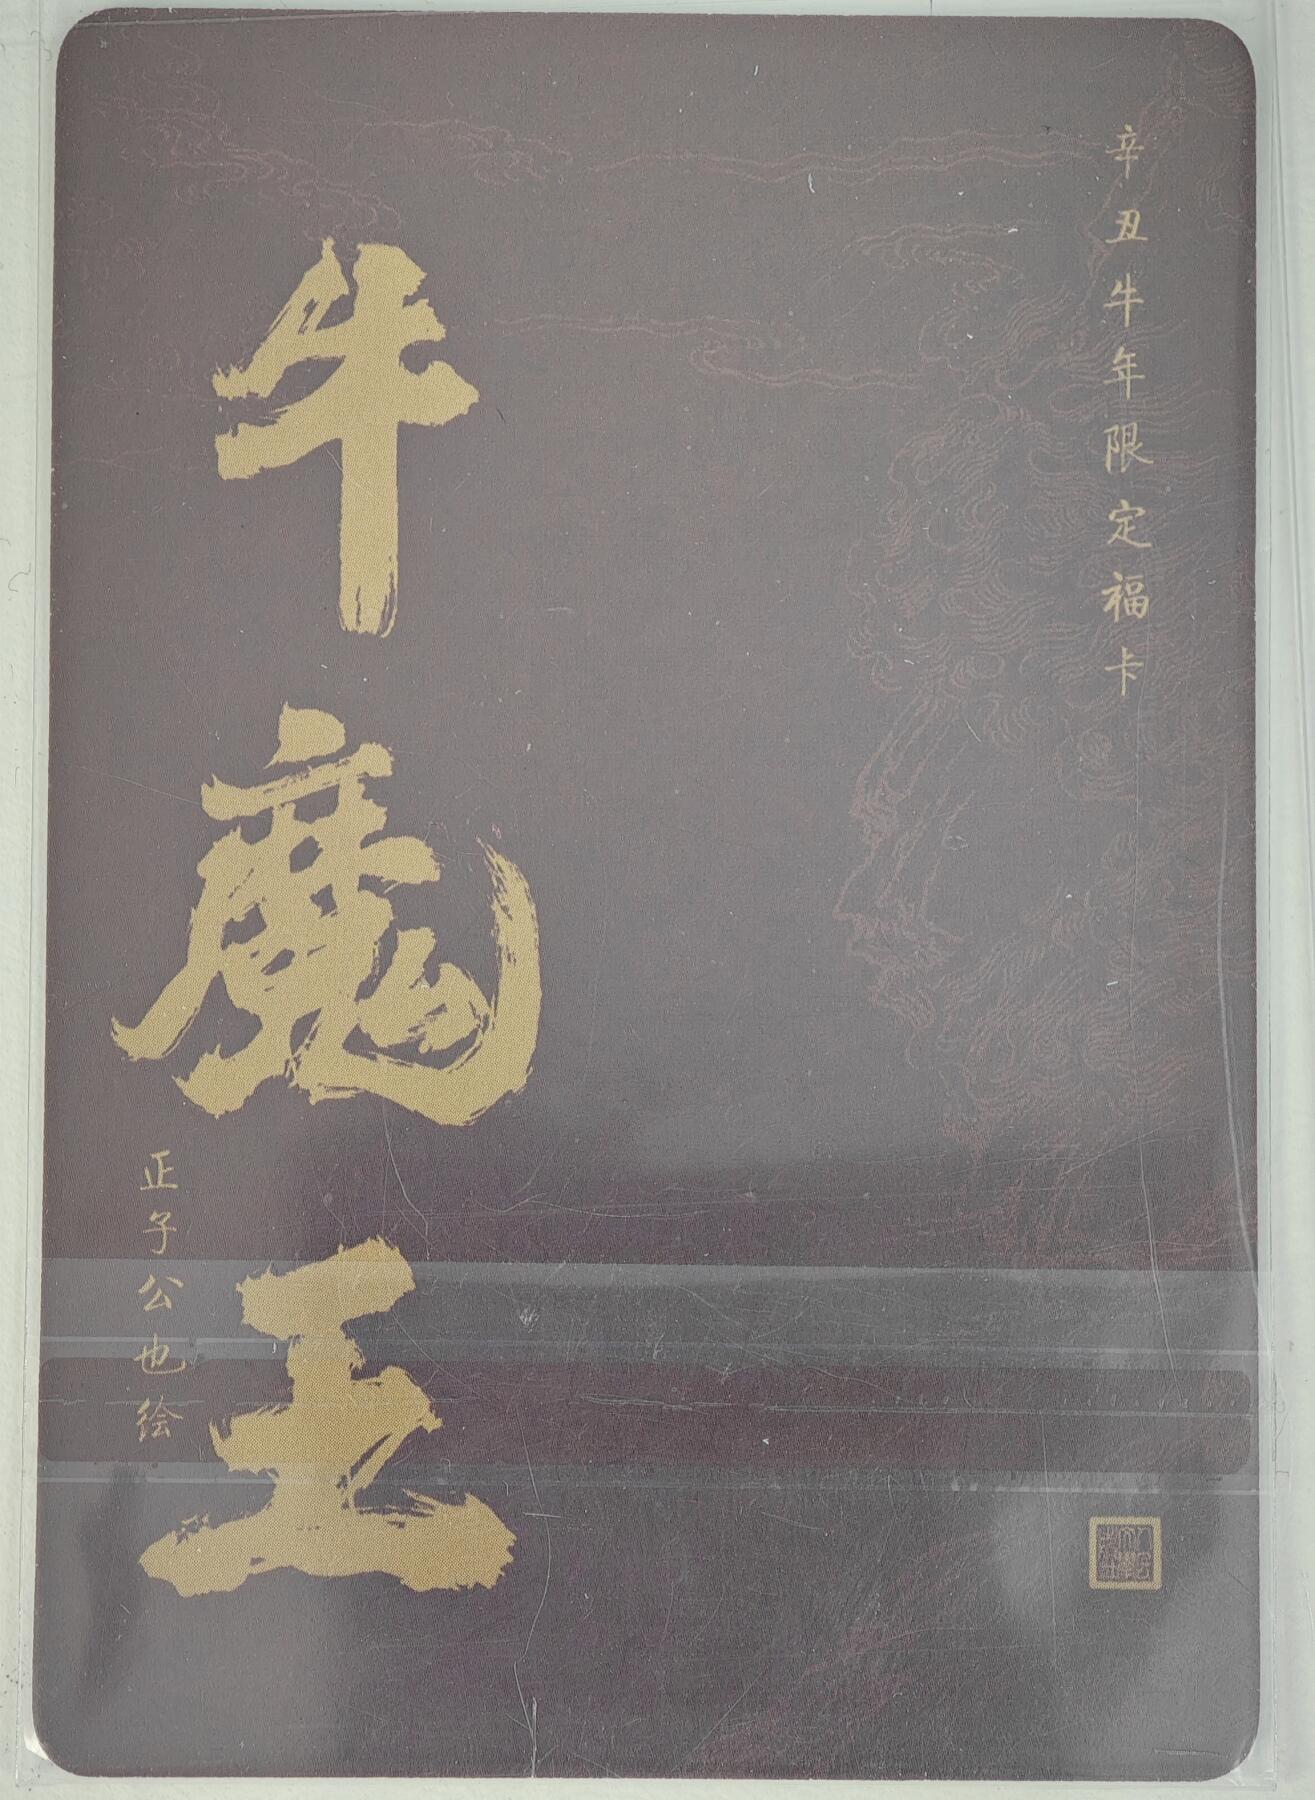 辛丑牛年限定福卡
牛魔王
正子公也绘